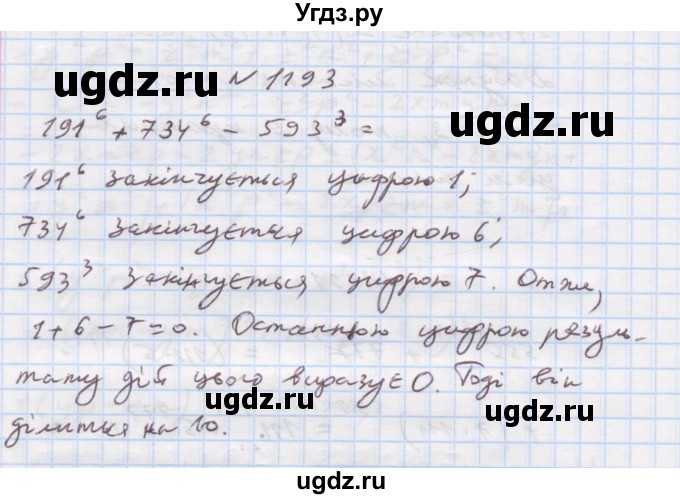 Угдз.ру
ugdz.ru
ugdz.ru
N 1193
191⁶ + 734⁶ - 593³ =
191⁶ закінчується цифрою 1;
734⁶ закінчується цифрою 6;
593³ закінчується цифрою 7. Отже,
1+6-7=0. Останньою цифрою резуль-
тату дій цього виразу є 0. Тоді він
ugdz.ru
ugdz.ru
ділиться на 10.
ugdz.ru
ugdz.ru